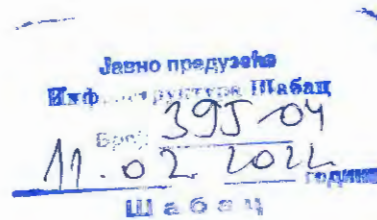 Јавно предузеће
Инфраструктура Шабац
Број: 395-04
11.02 2022 године
Шабац